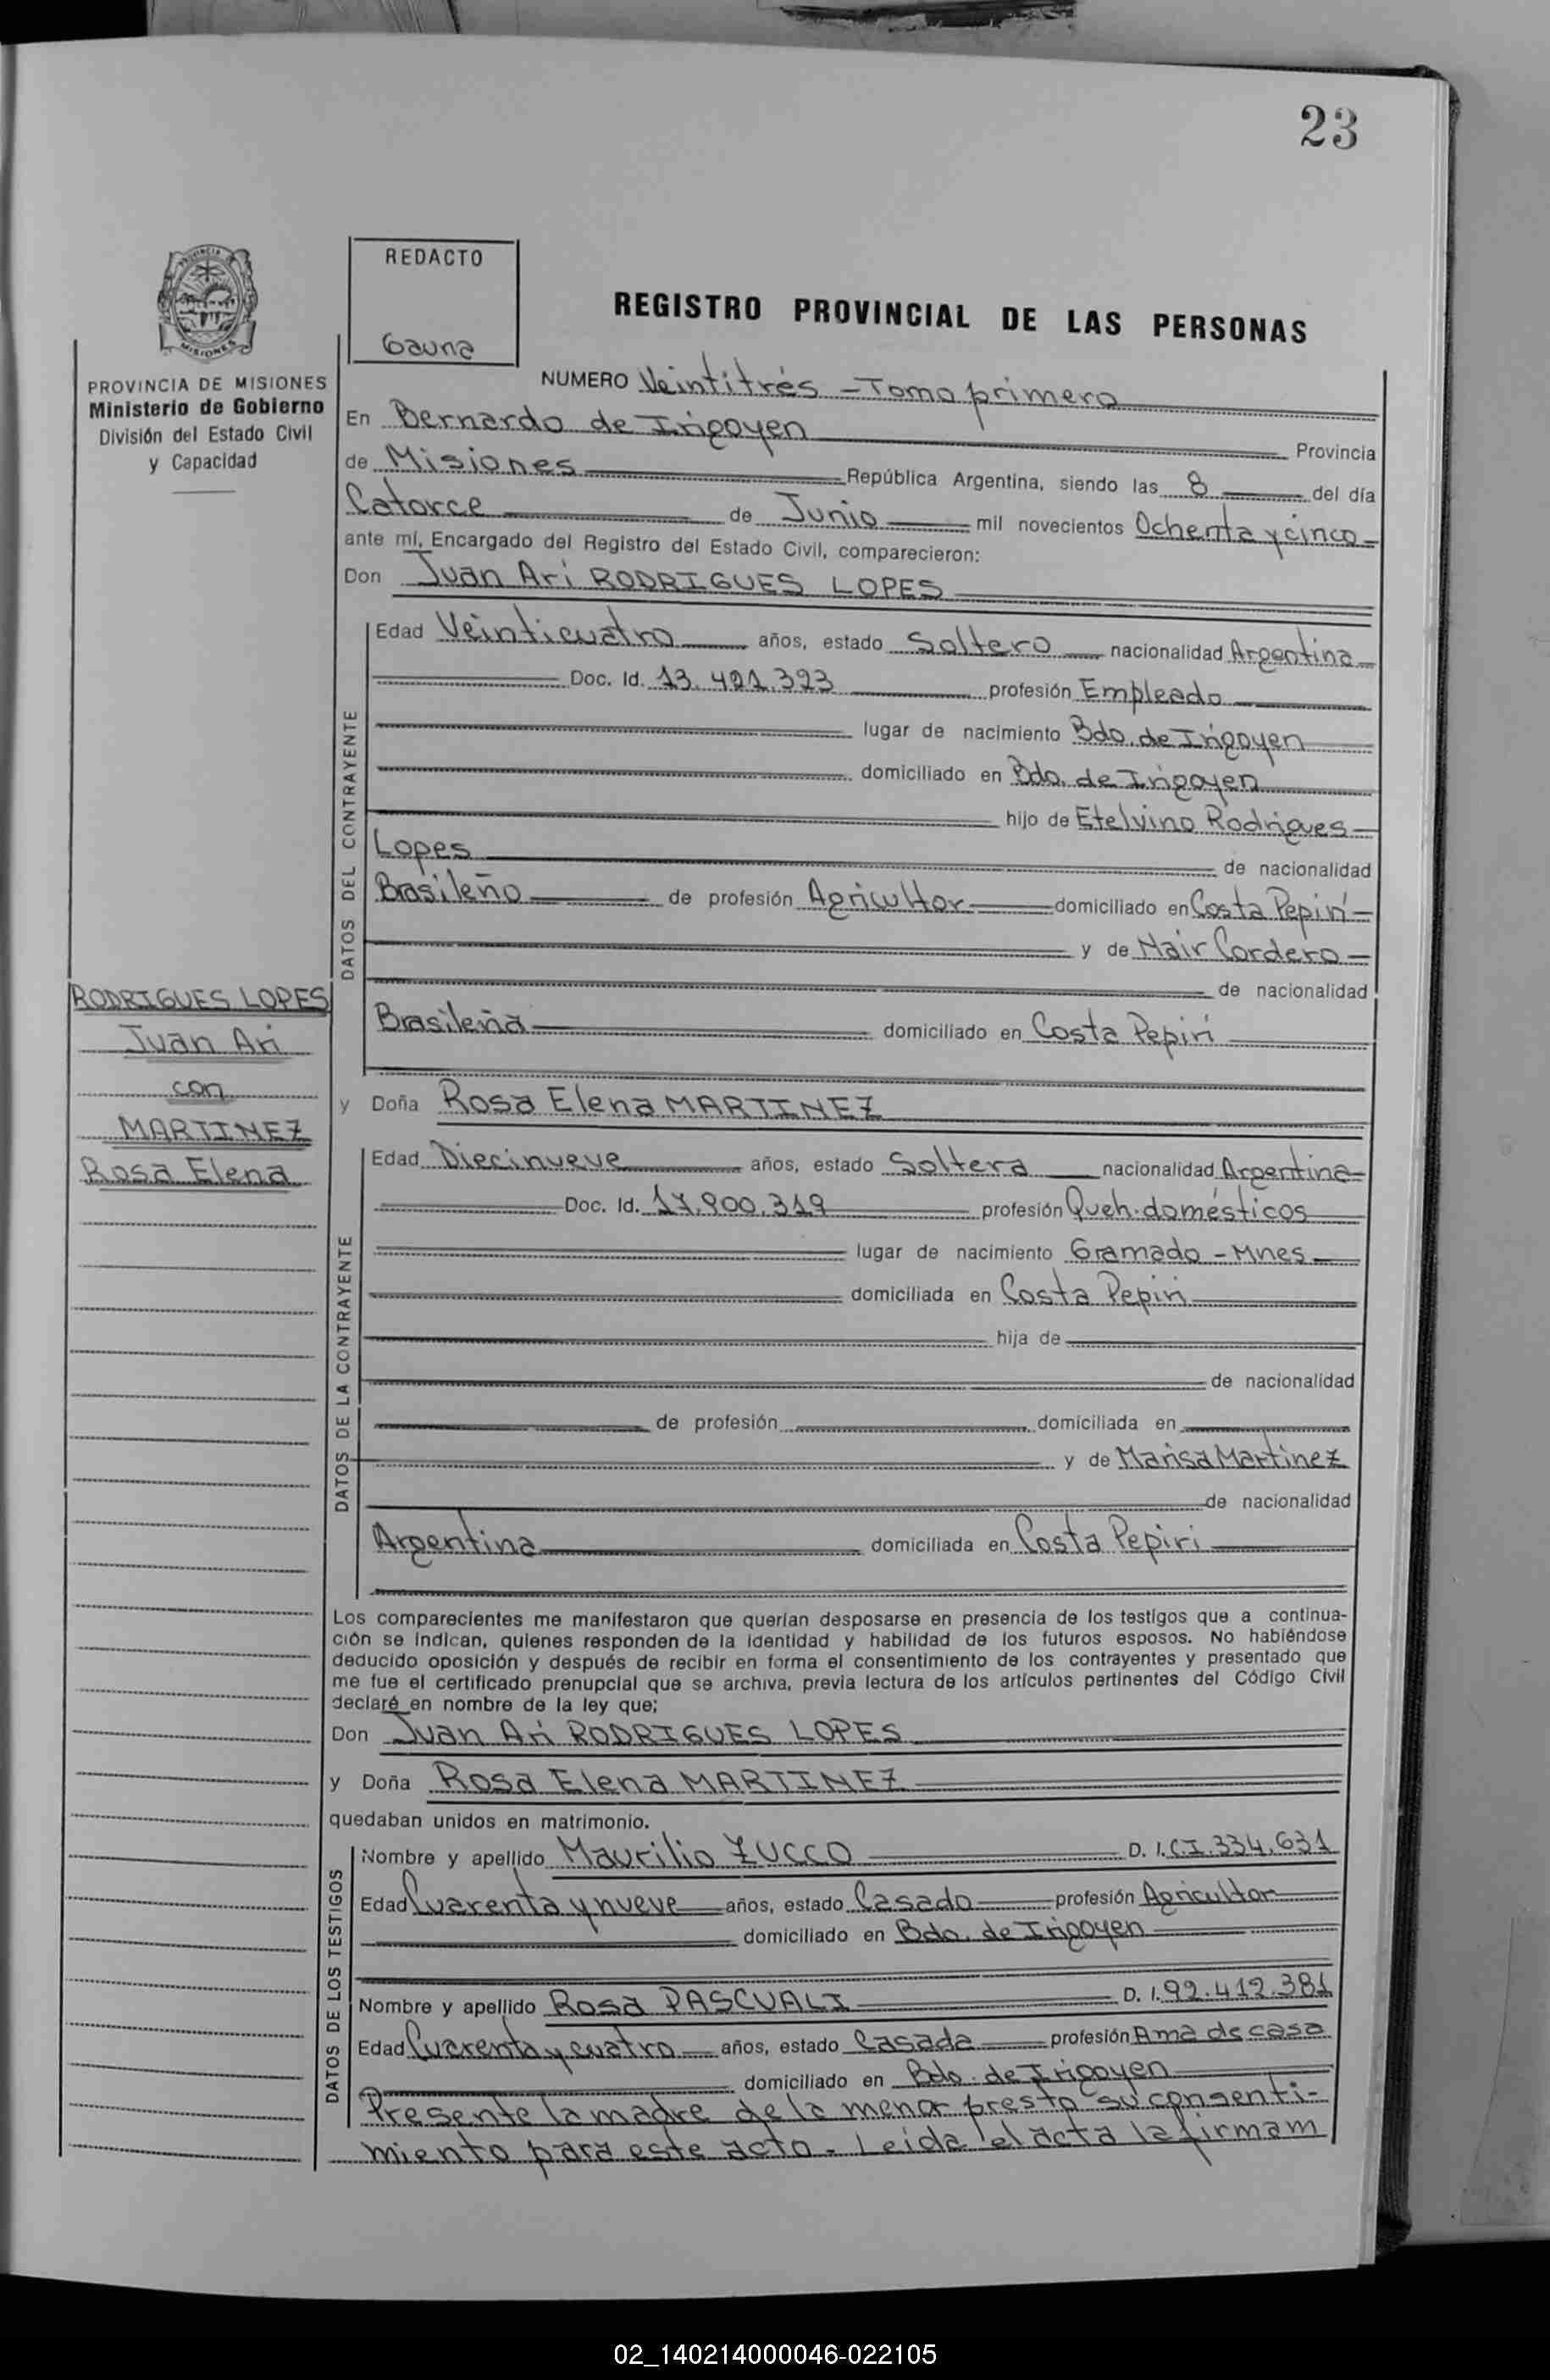 23
REDACTO
Gauna
REGISTRO PROVINCIAL DE LAS PERSONAS
PROVINCIA DE MISIONES
Ministerio de Gobierno
División del Estado Civil
y Capacidad
NUMERO Veintitrés - Tomo primero
En Bernardo de Irigoyen Provincia
de Misiones República Argentina, siendo las 8 del día
Catorce de Junio mil novecientos Ochenta y cinco
ante mí, Encargado del Registro del Estado Civil, comparecieron:
Don Juan Ari RODRIGUES LOPES
DATOS DEL CONTRAYENTE
Edad Veinticuatro años, estado Soltero nacionalidad Argentina
Doc. Id. 13.491.323 profesión Empleado
lugar de nacimiento Bdo. de Irigoyen
domiciliado en Bdo. de Irigoyen
hijo de Etelvino Rodrigues
Lopes de nacionalidad
Brasileño de profesión Agricultor domiciliado en Costa Pepirí
y de Nair Cordero
de nacionalidad
Brasileña domiciliado en Costa Pepirí
RODRIGUES LOPES
Juan Ari
con
MARTINEZ
Rosa Elena
y Doña Rosa Elena MARTINEZ
DATOS DE LA CONTRAYENTE
Edad Diecinueve años, estado Soltera nacionalidad Argentina
Doc. Id. 17.900.319 profesión Queh. domésticos
lugar de nacimiento Gramado - Mnes
domiciliada en Costa Pepiri
hija de
de nacionalidad
de profesión domiciliada en
y de Marisa Martinez
de nacionalidad
Argentina domiciliada en Costa Pepiri
Los comparecientes me manifestaron que querían desposarse en presencia de los testigos que a continua-
ción se indican, quienes responden de la identidad y habilidad de los futuros esposos. No habiéndose
deducido oposición y después de recibir en forma el consentimiento de los contrayentes y presentado que
me fue el certificado prenupcial que se archiva, previa lectura de los artículos pertinentes del Código Civil
declaré en nombre de la ley que;
Don Juan Ari RODRIGUES LOPES
y Doña Rosa Elena MARTINEZ
quedaban unidos en matrimonio.
DATOS DE LOS TESTIGOS
Nombre y apellido Maurilio ZUCCO D. I. C.I. 334.631
Edad Cuarenta y nueve años, estado Casado profesión Agricultor
domiciliado en Bdo. de Irigoyen
Nombre y apellido Rosa PASCUALI D. I. 92.412.381
Edad Cuarenta y cuatro años, estado Casada profesión Ama de casa
domiciliado en Bdo. de Irigoyen
Presente la madre de la menor presta su consenti-
miento para este acto. Leida el acta la firmam
02_140214000046-022105